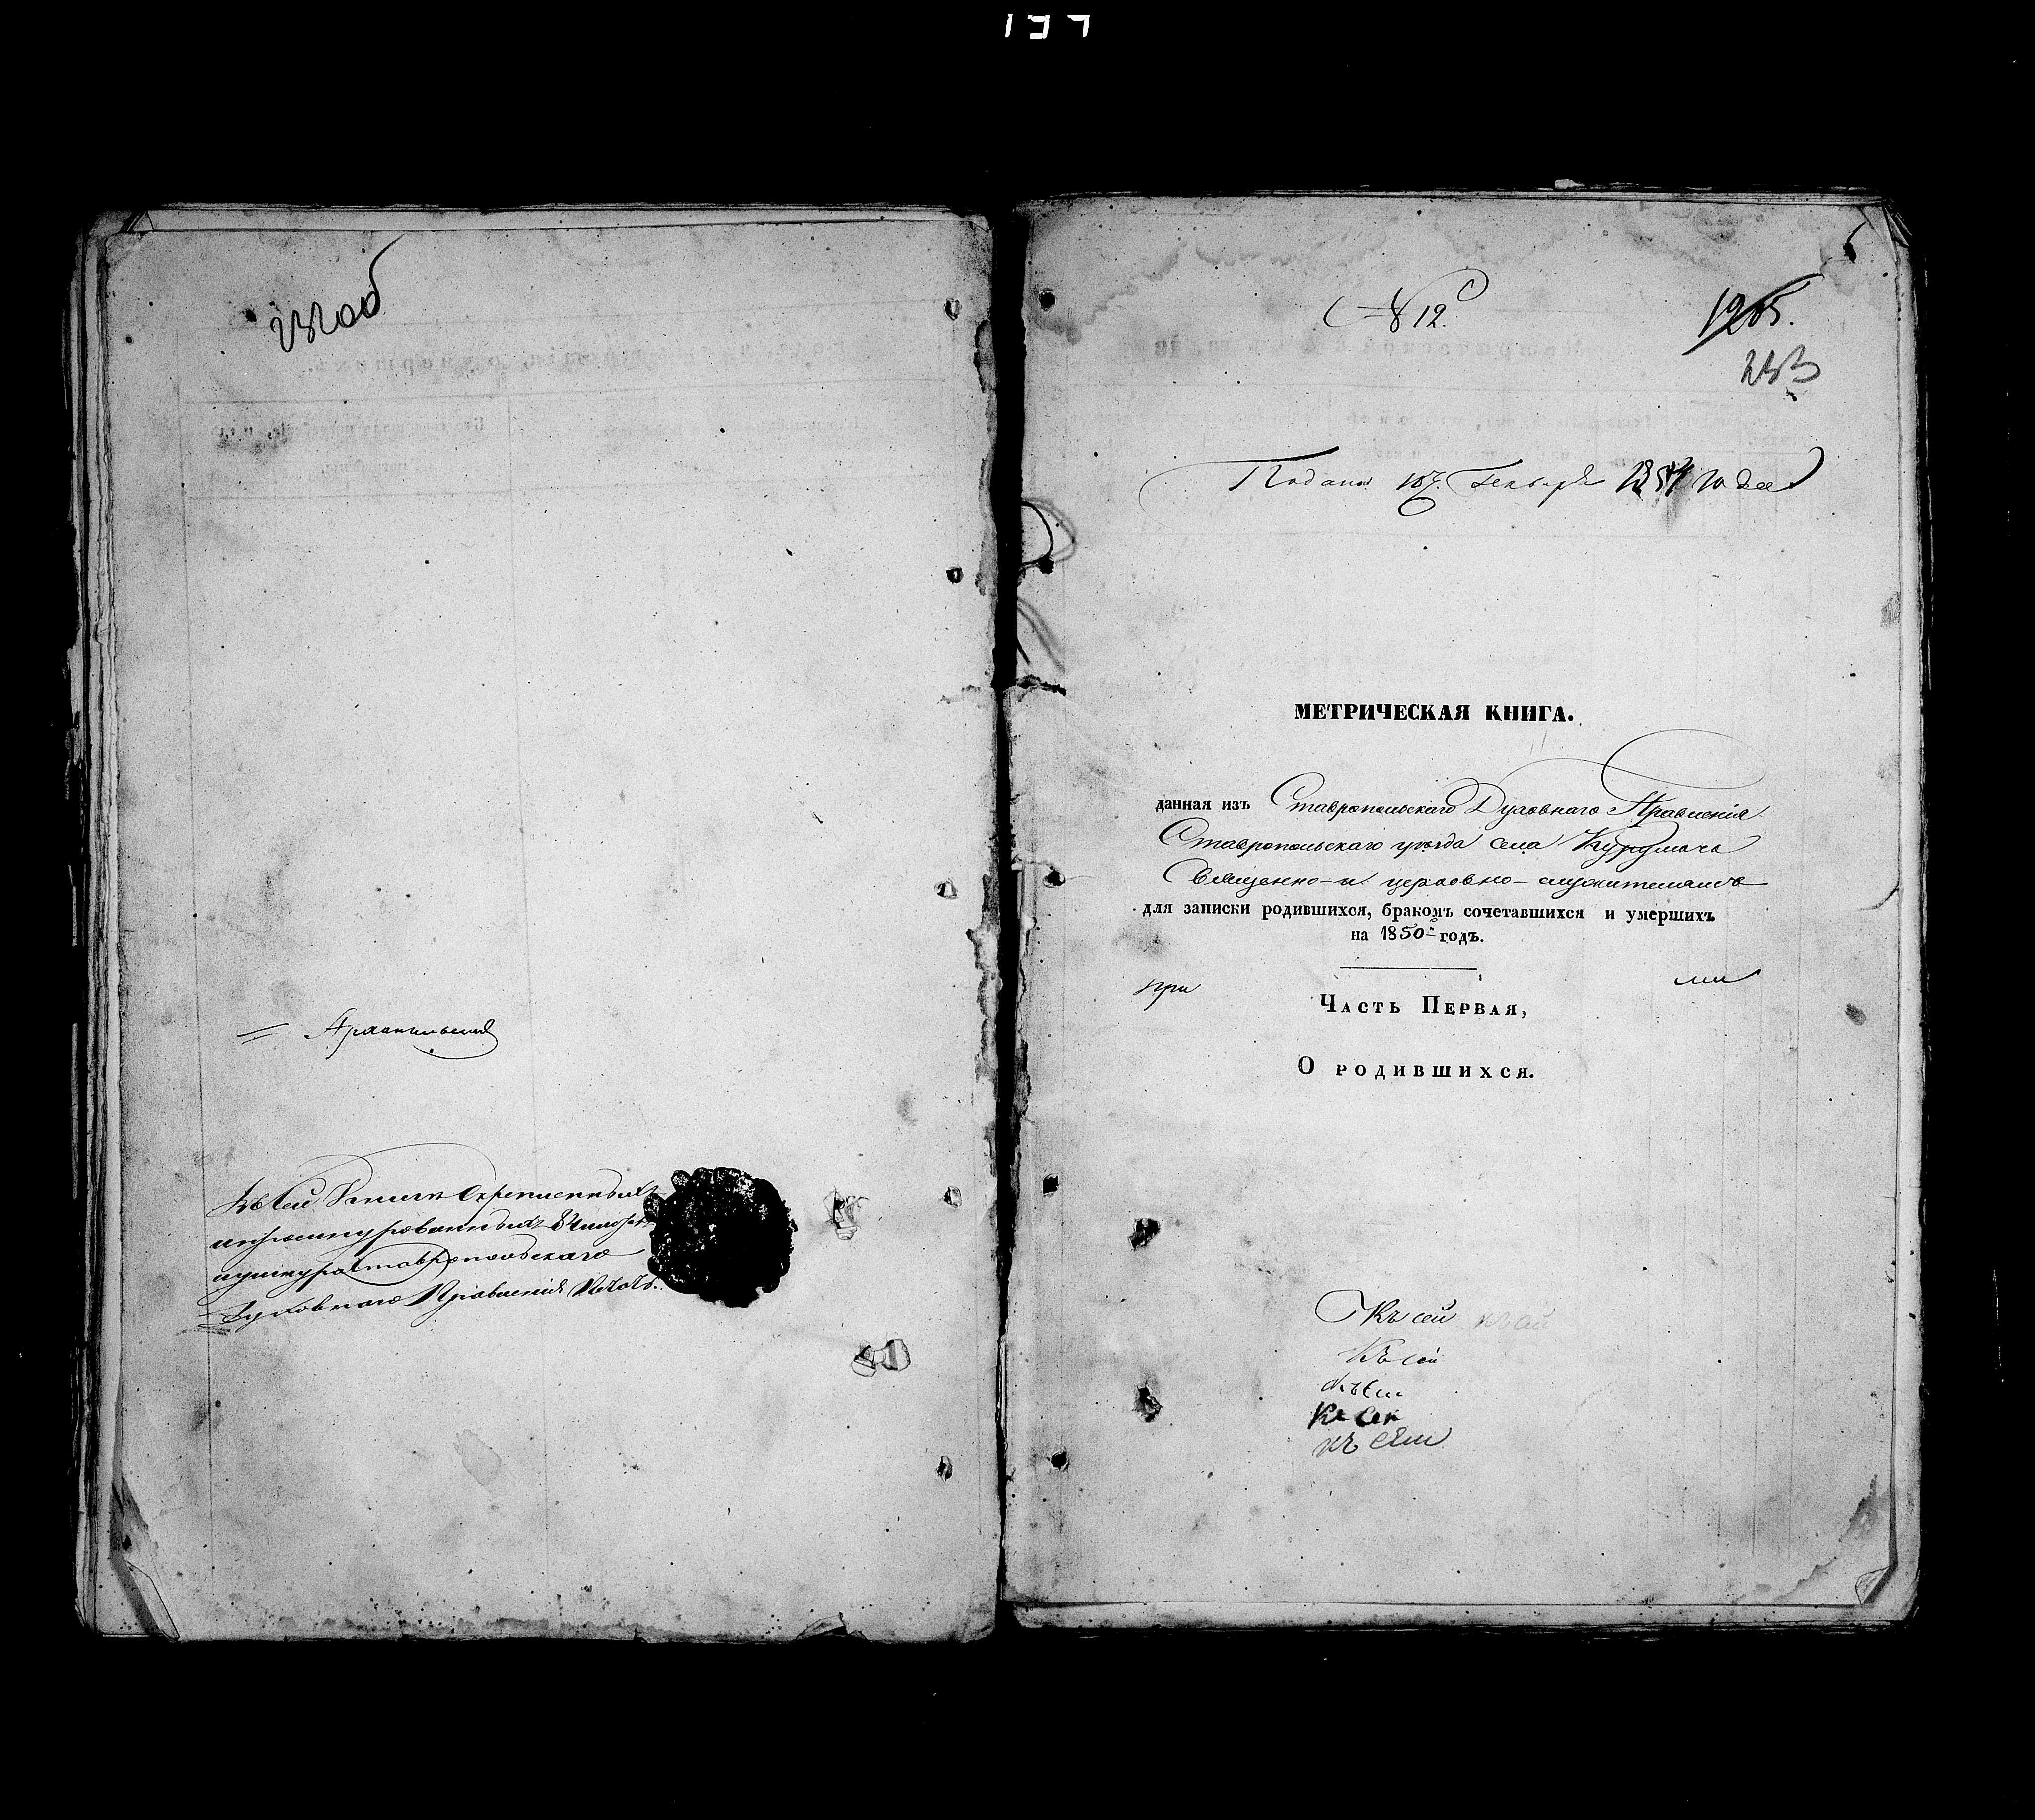 Архангельскій
Къ сей книги скрепленныхъ
и прошнурованныхъ
шнура Ставропольскаго
Духовнаго Правленія Печать.
№ 12.
1265.
Подана Генваря года
МЕТРИЧЕСКАЯ КНИГА.
данная изъ Ставропольскаго Духовнаго Правленія
Ставропольскаго уѣзда села Курумоча
Священно- и церковно-служителямъ
для записки родившихся, бракомъ сочетавшихся и умершихъ
на 1850й годъ.
при ми
Часть Первая,
О родившихся.
Къ сей къ сей
Къ сей
къ сей
къ сей
къ сей